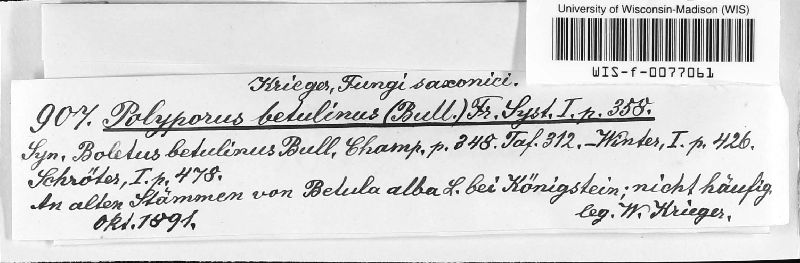 University of Wisconsin-Madison (WIS)
WIS-f-0077061
Krieger, Fungi saxonici.
907. Polyporus betulinus (Bull.) Fr. Syst. I. p. 358.
Syn. Boletus betulinus Bull. Champ. p. 348. Taf. 312. – Winter, I. p. 426.
Schröter, I. p. 478.
An alten Stämmen von Betula alba L. bei Königstein; nicht häufig.
Okt. 1891. leg. W. Krieger.